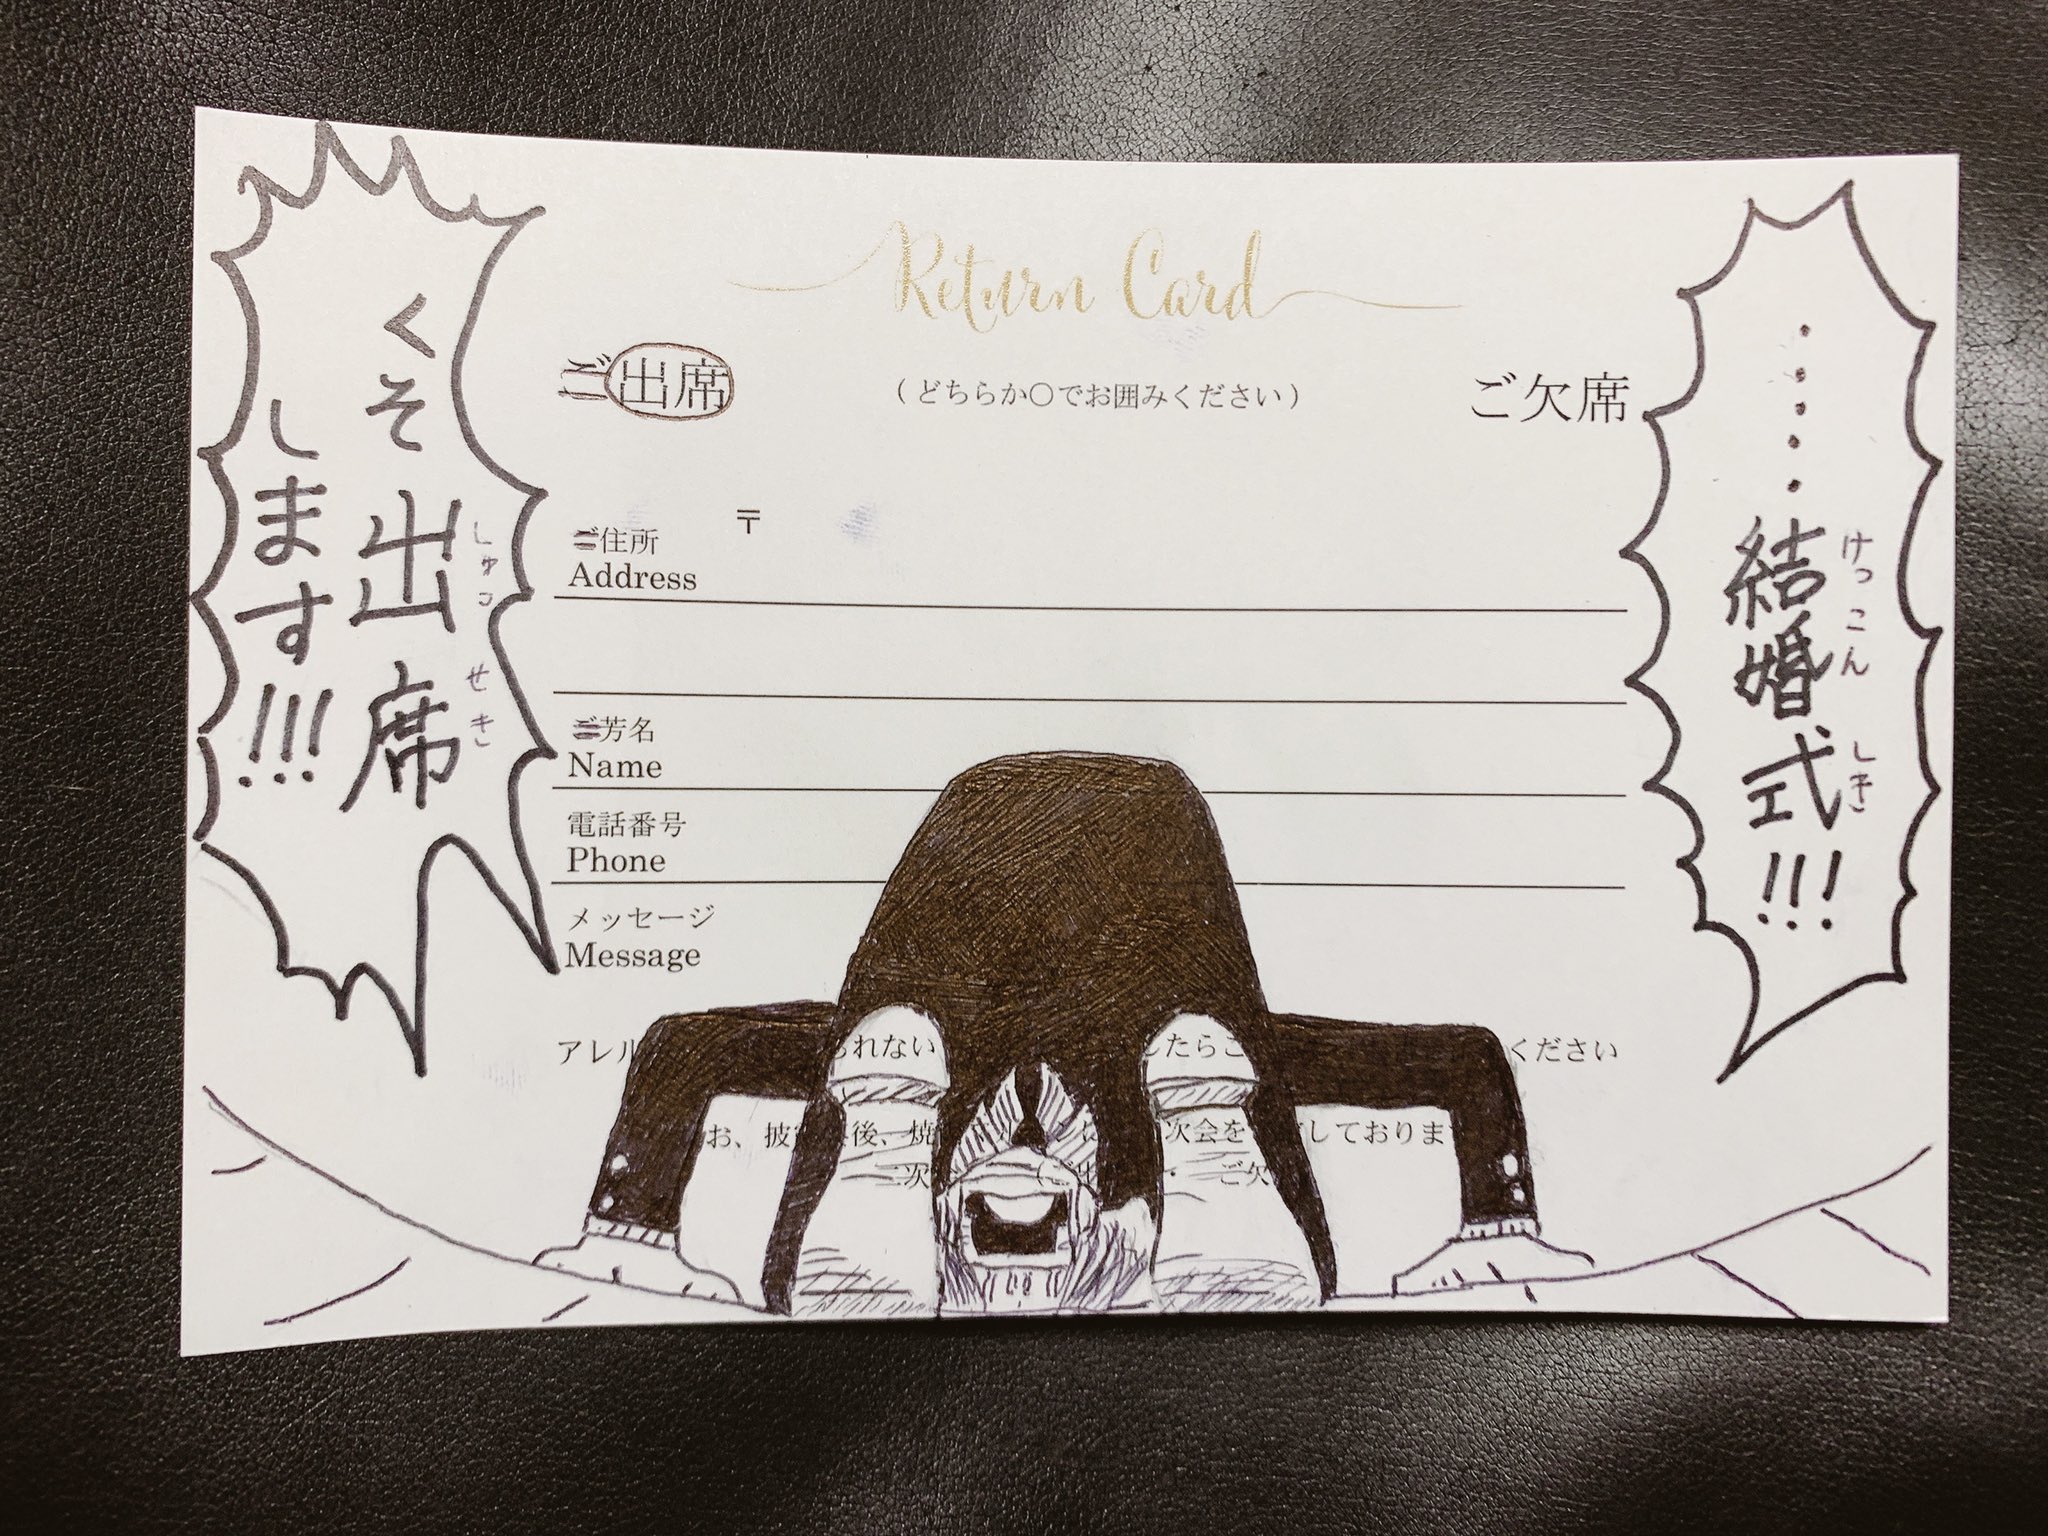 Return Card
ご出席
(どちらか○でお囲みください)
ご欠席
‥‥‥結婚式!!!
けっこん しき
くそ出席
しゅつ せき
します!!!
〒
ご住所
Address
ご芳名
Name
電話番号
Phone
メッセージ
Message
アレル られない したらこ ください
お、披 後、焼 次会を しております
二次 ・ ご欠